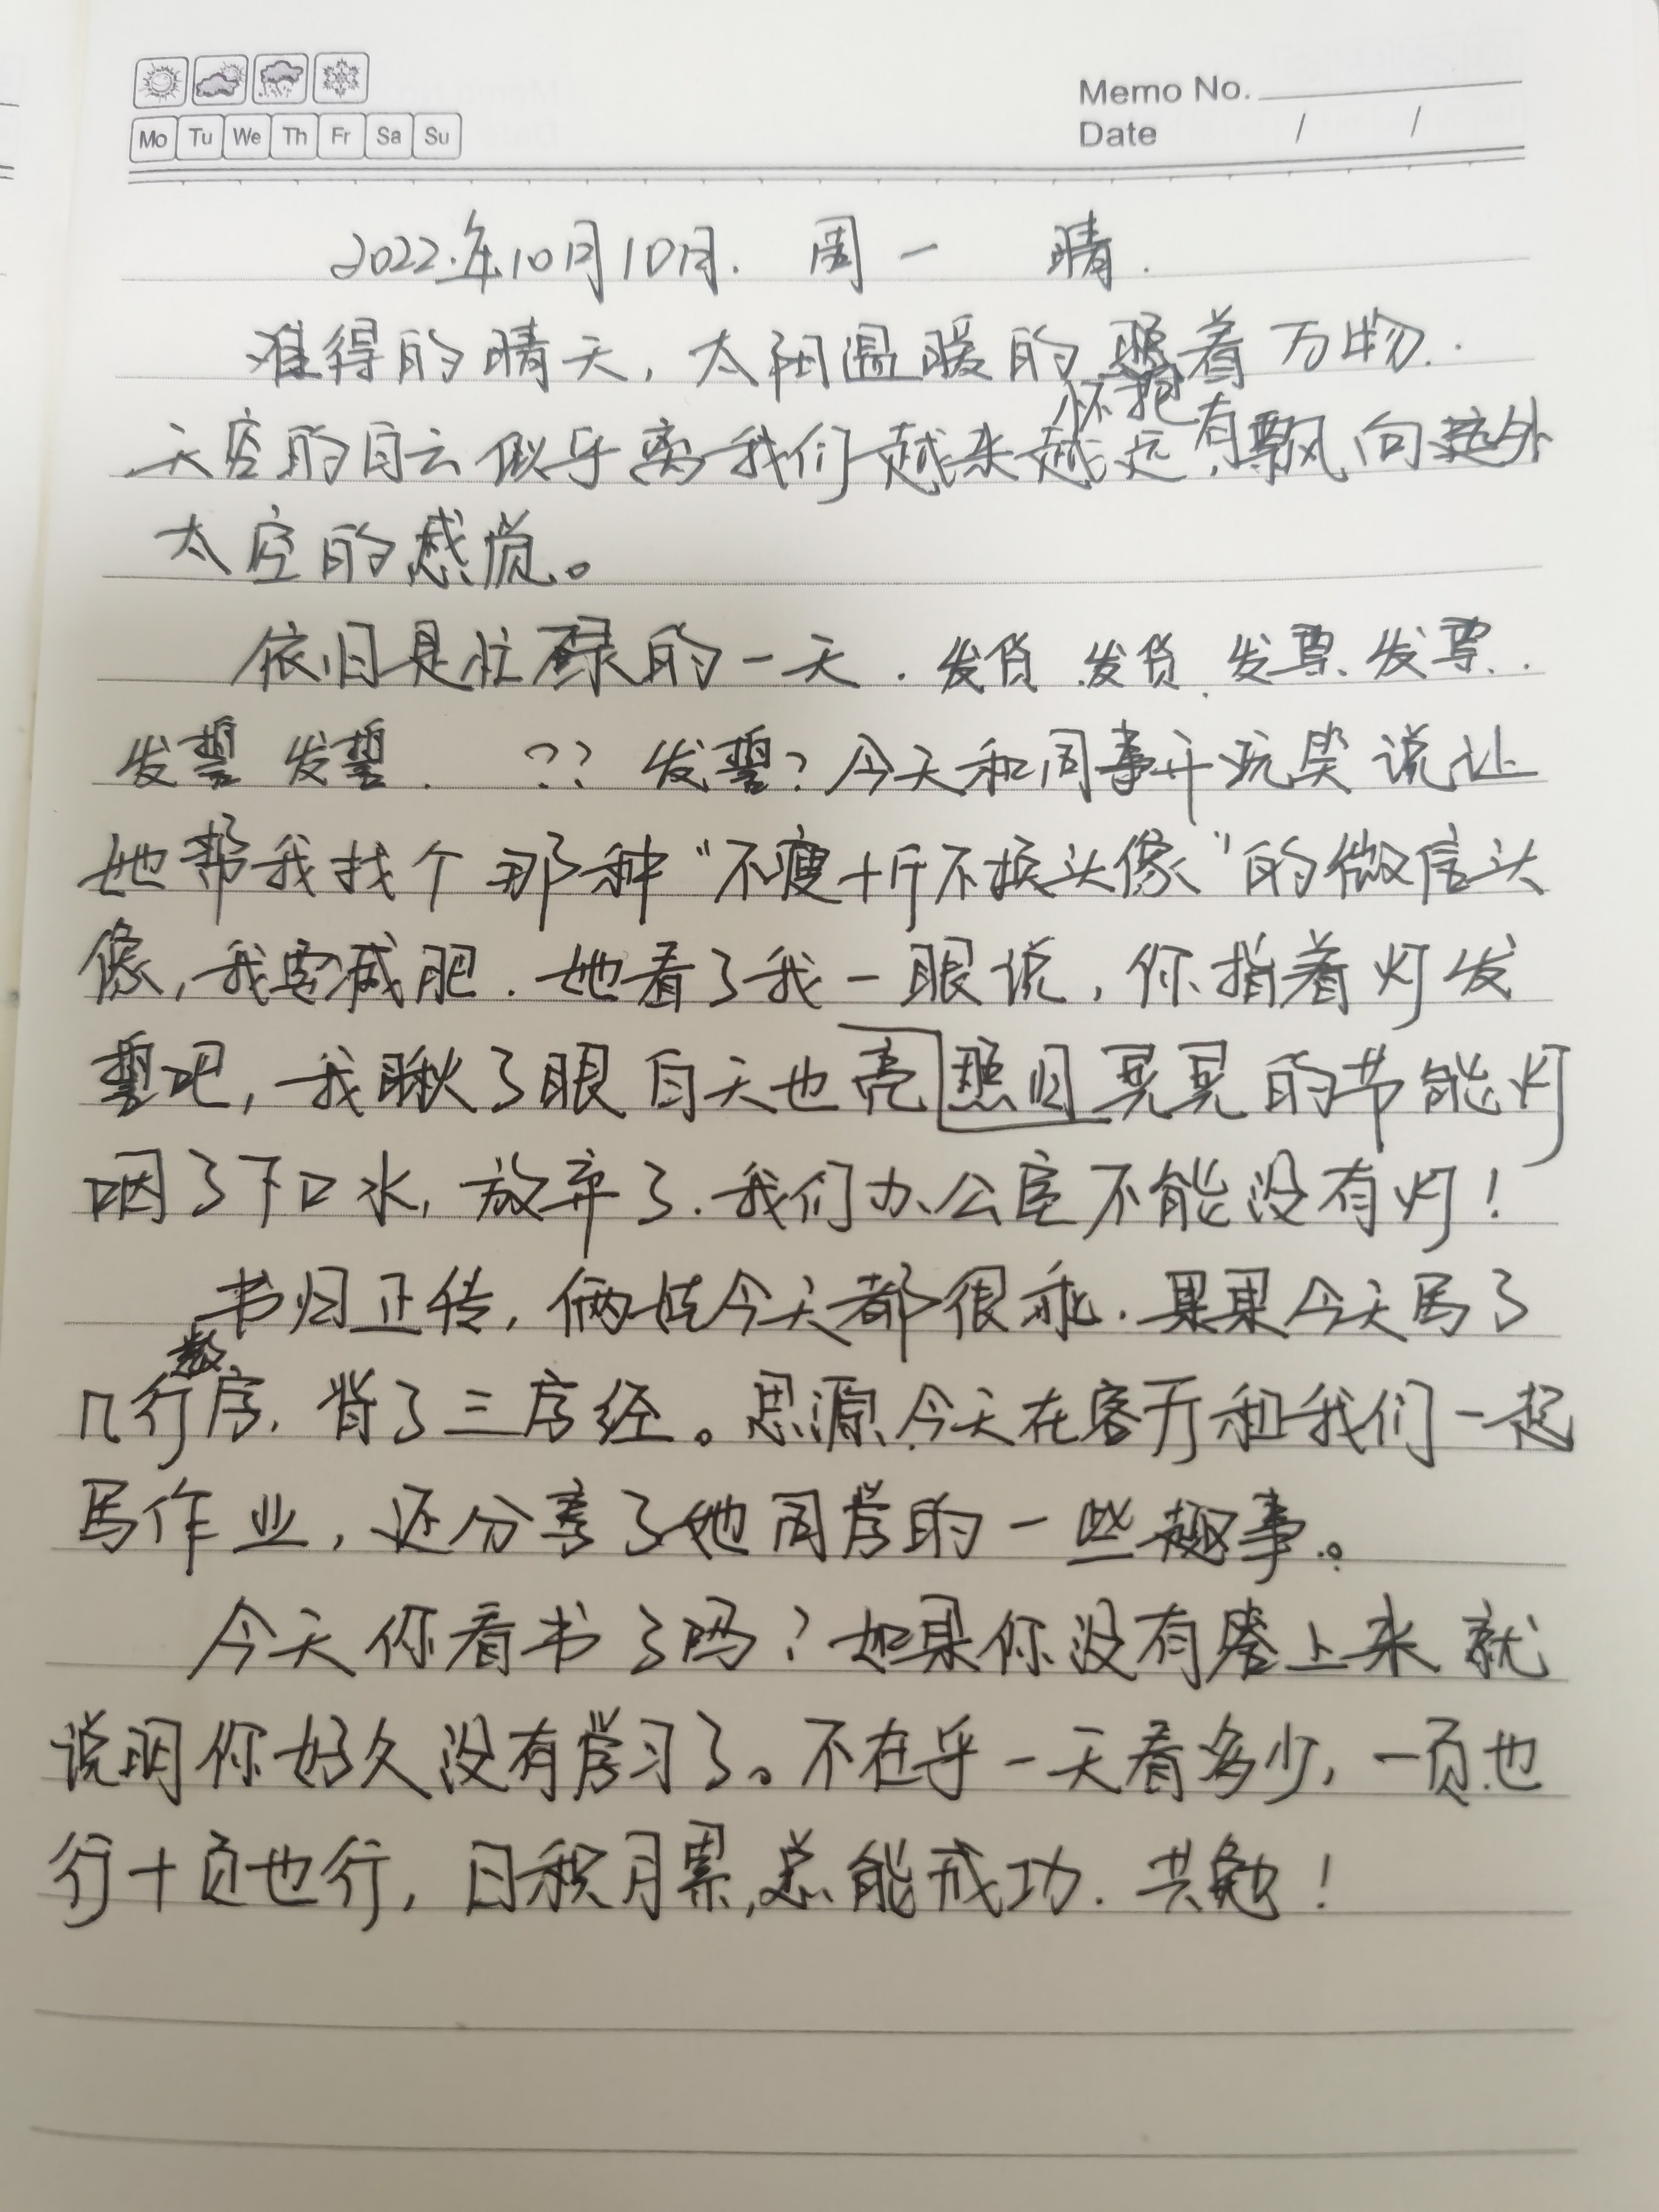 Memo No.
Mo Tu We Th Fr Sa Su
Date / /
2022.年10月10日. 周一 晴.
难得的晴天, 太阳温暖的怀抱着万物.
天空的白云似乎离我们越来越远,有飘向范外
太空的感觉。
依旧是忙碌的一天. 发货 发货、发票、发票.
发誓 发誓. ?? 发誓?今天和同事开玩笑说让
她帮我找个那种“不瘦十斤不换头像”的微信头
像, 我要减肥. 她看了我一眼说, 你指着灯发
誓吧, 我瞅了眼白天也亮晃晃的节能灯
咽了下口水, 放弃了. 我们办公室不能没有灯!
书归正传, 俩娃今天都很乖. 果果今天写了
几行数字, 背了三字经。思源今天在客厅和我们一起
写作业, 还分享了她同学的一些趣事。
今天你看书了吗?如果你没有答上来 就
说明你好久没有学习了。不在乎一天看多少, 一页也
行十页也行, 日积月累,总能成功. 共勉!